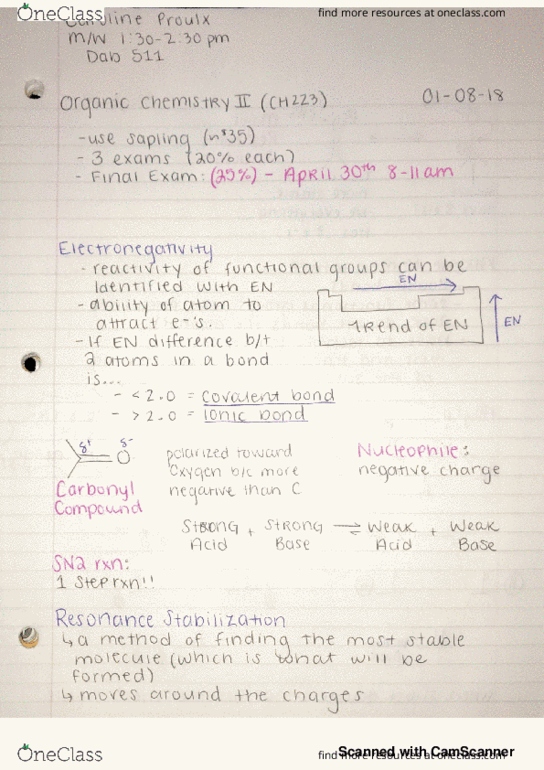 OneClass
find more resources at oneclass.com
Caroline Proulx
M/W 1:30-2:30 pm
Dab 511
Organic Chemistry II (CH223) 01-08-18
- use sapling (n°35)
- 3 exams (20% each)
- Final Exam: (25%) - April 30th 8-11am
Electronegativity
- reactivity of functional groups can be
identified with EN
- ability of atom to
attract e-'s.
- If EN difference b/t
2 atoms in a bond
is...
- < 2.0 = covalent bond
- > 2.0 = ionic bond
EN
Trend of EN
EN
δ+ δ-
O
Carbonyl
Compound
polarized toward
Oxygen b/c more
negative than C
Nucleophile:
negative charge
Strong Acid + Strong Base ⇌ Weak Acid + Weak Base
SN2 rxn:
1 Step rxn!!
Resonance Stabilization
↳ a method of finding the most stable
molecule (which is what will be
formed)
↳ moves around the charges
OneClass
find more resources at oneclass.com
Scanned with CamScanner